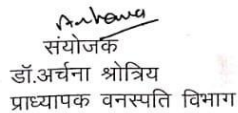 Archana
संयोजक
डॉ.अर्चना श्रोत्रिय
प्राध्यापक वनस्पति विभाग